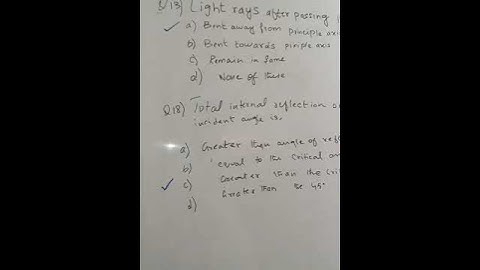 Q13) Light rays after passing
a) Bent away from principle axis
b) Bent towards piniple axis
c) Remain in same
d) None of these
Q18) Total internal reflection
incident angle is.
a) Greater then angle of
b) equal to the critical
c) Greater than the
d) Greater than 45°